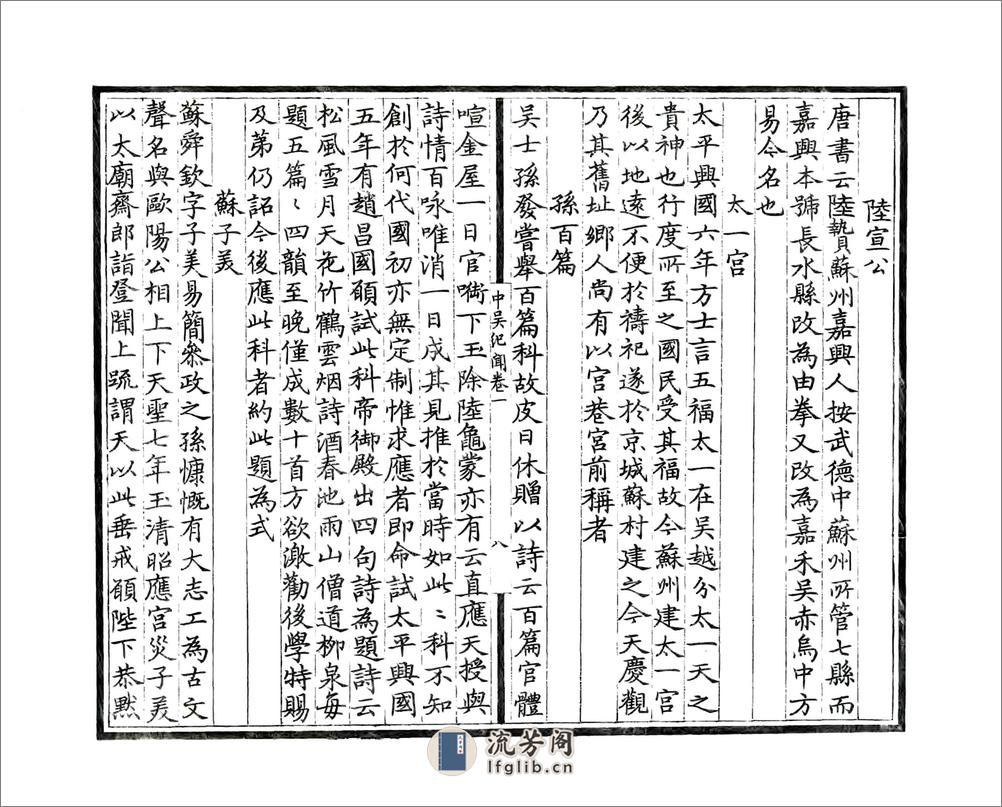 陸宣公
唐書云陸贄蘇州嘉興人按武德中蘇州所管七縣而
嘉興本號長水縣改為由拳又改為嘉禾吳赤烏中方
易今名也
太一宮
太平興國六年方士言五福太一在吳越分太一天之
貴神也行度所至之國民受其福故今蘇州建太一宮
後以地遠不便於禱祀遂於京城蘇村建之今天慶觀
乃其舊址鄉人尚有以宮巷宮前稱者
孫百篇
吳士孫發嘗舉百篇科故皮日休贈以詩云百篇官體
中吳紀聞卷一
八
喧金屋一日官銜下玉除陸龜蒙亦有云直應天授與
詩情百咏唯消一日成其見推於當時如此〻科不知
創於何代國初亦無定制惟求應者即命試太平興國
五年有趙昌國願試此科帝御殿出四句詩為題詩云
松風雪月天花竹鶴雲烟詩酒春池雨山僧道柳泉每
題五篇〻四韻至晚僅成數十首方欲激勸後學特賜
及第仍詔今後應此科者約此題為式
蘇子美
蘇舜欽字子美易簡參政之孫慷慨有大志工為古文
聲名與歐陽公相上下天聖七年玉清昭應宮災子美
以太廟齋郎詣登聞上疏謂天以此垂戒願陛下恭默
流芳阁
lfglib.cn